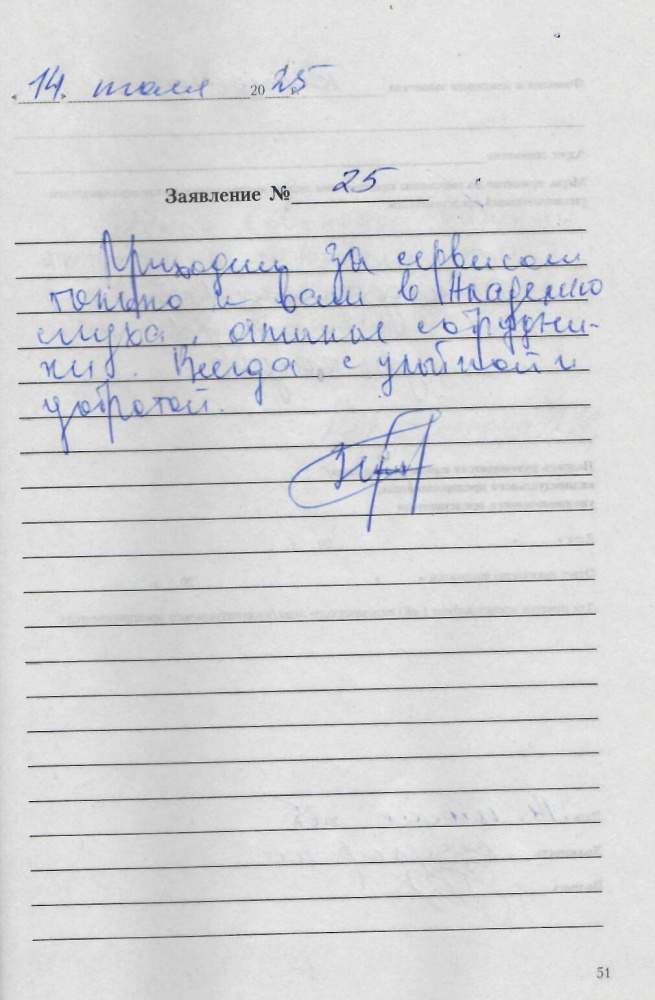 «14» июля 2025 г.
Заявление № 25
Приходим за сервисом
только к вам в Академию
слуха, отличные сотрудни-
ки. Всегда с улыбкой и
добротой.
51